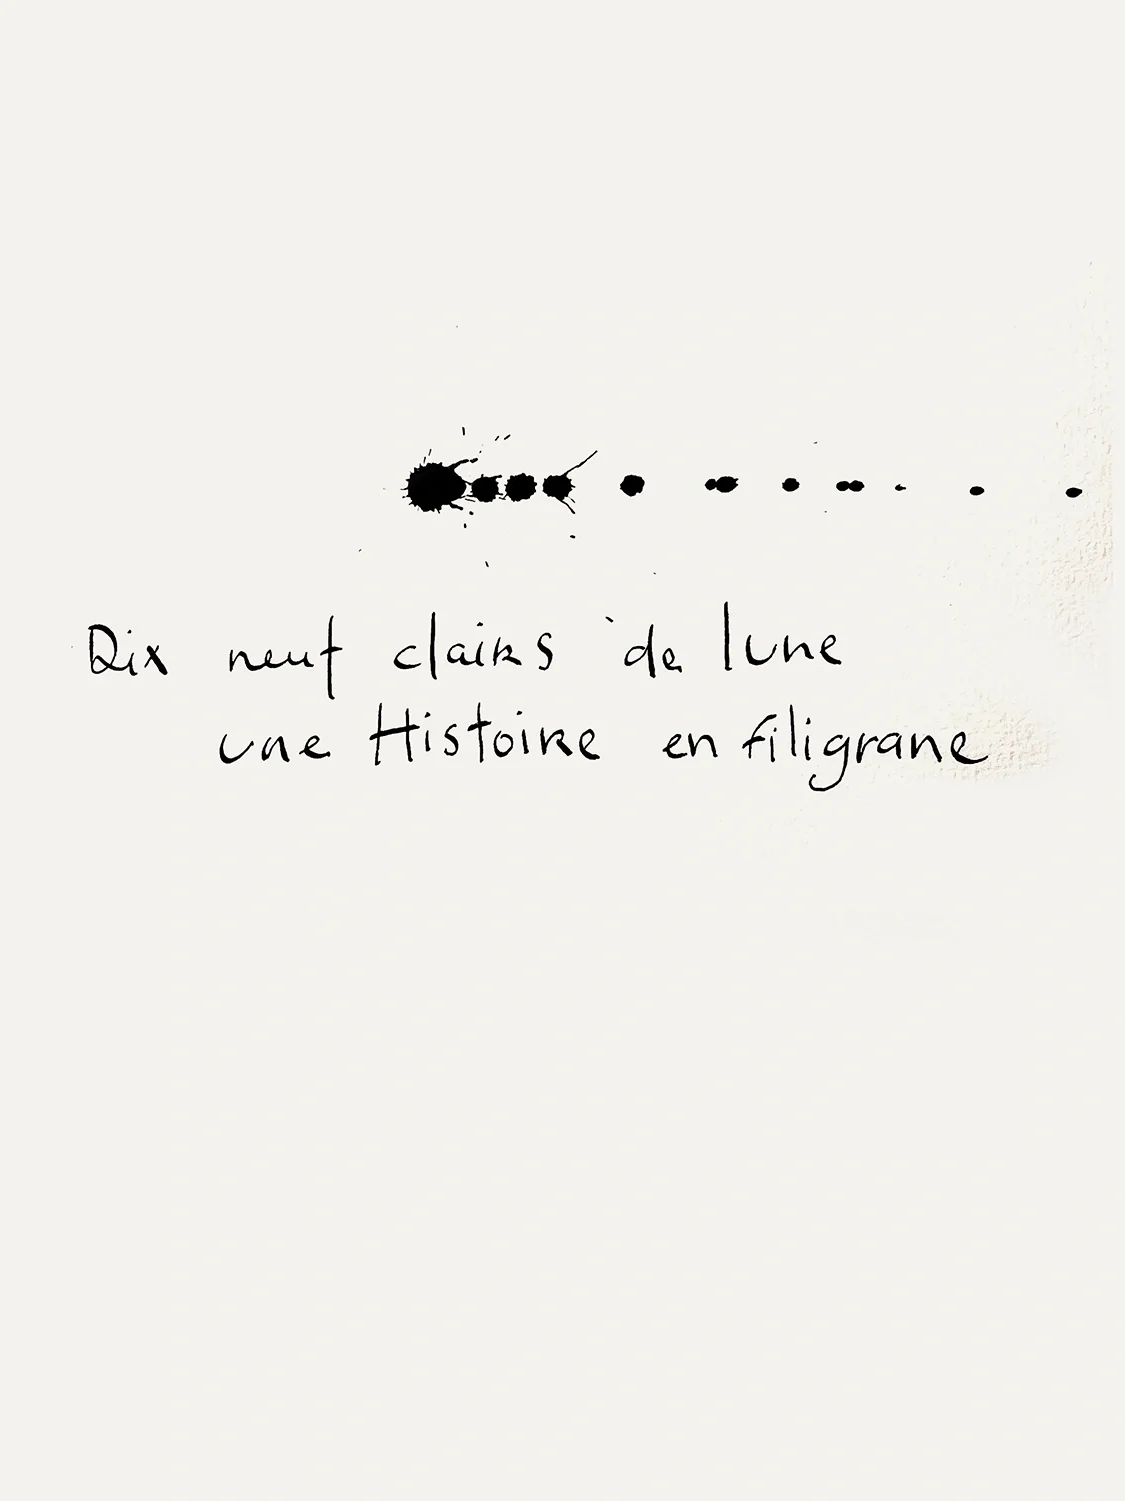 Dix neuf clairs de lune
une Histoire en filigrane